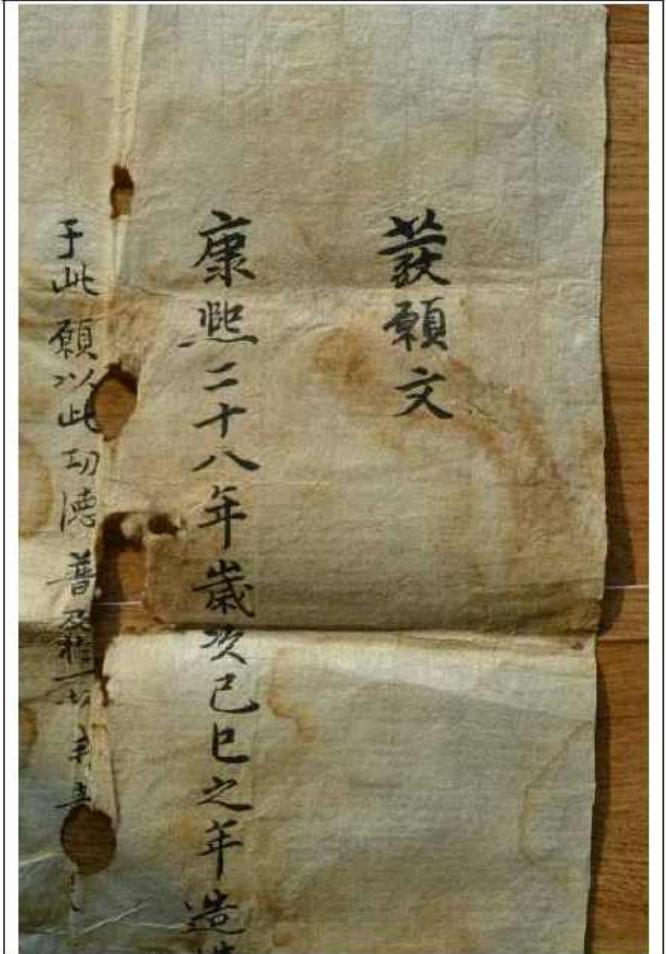 發願文
康熙二十八年歲次己巳之年造
于此願以此功德普及於一切